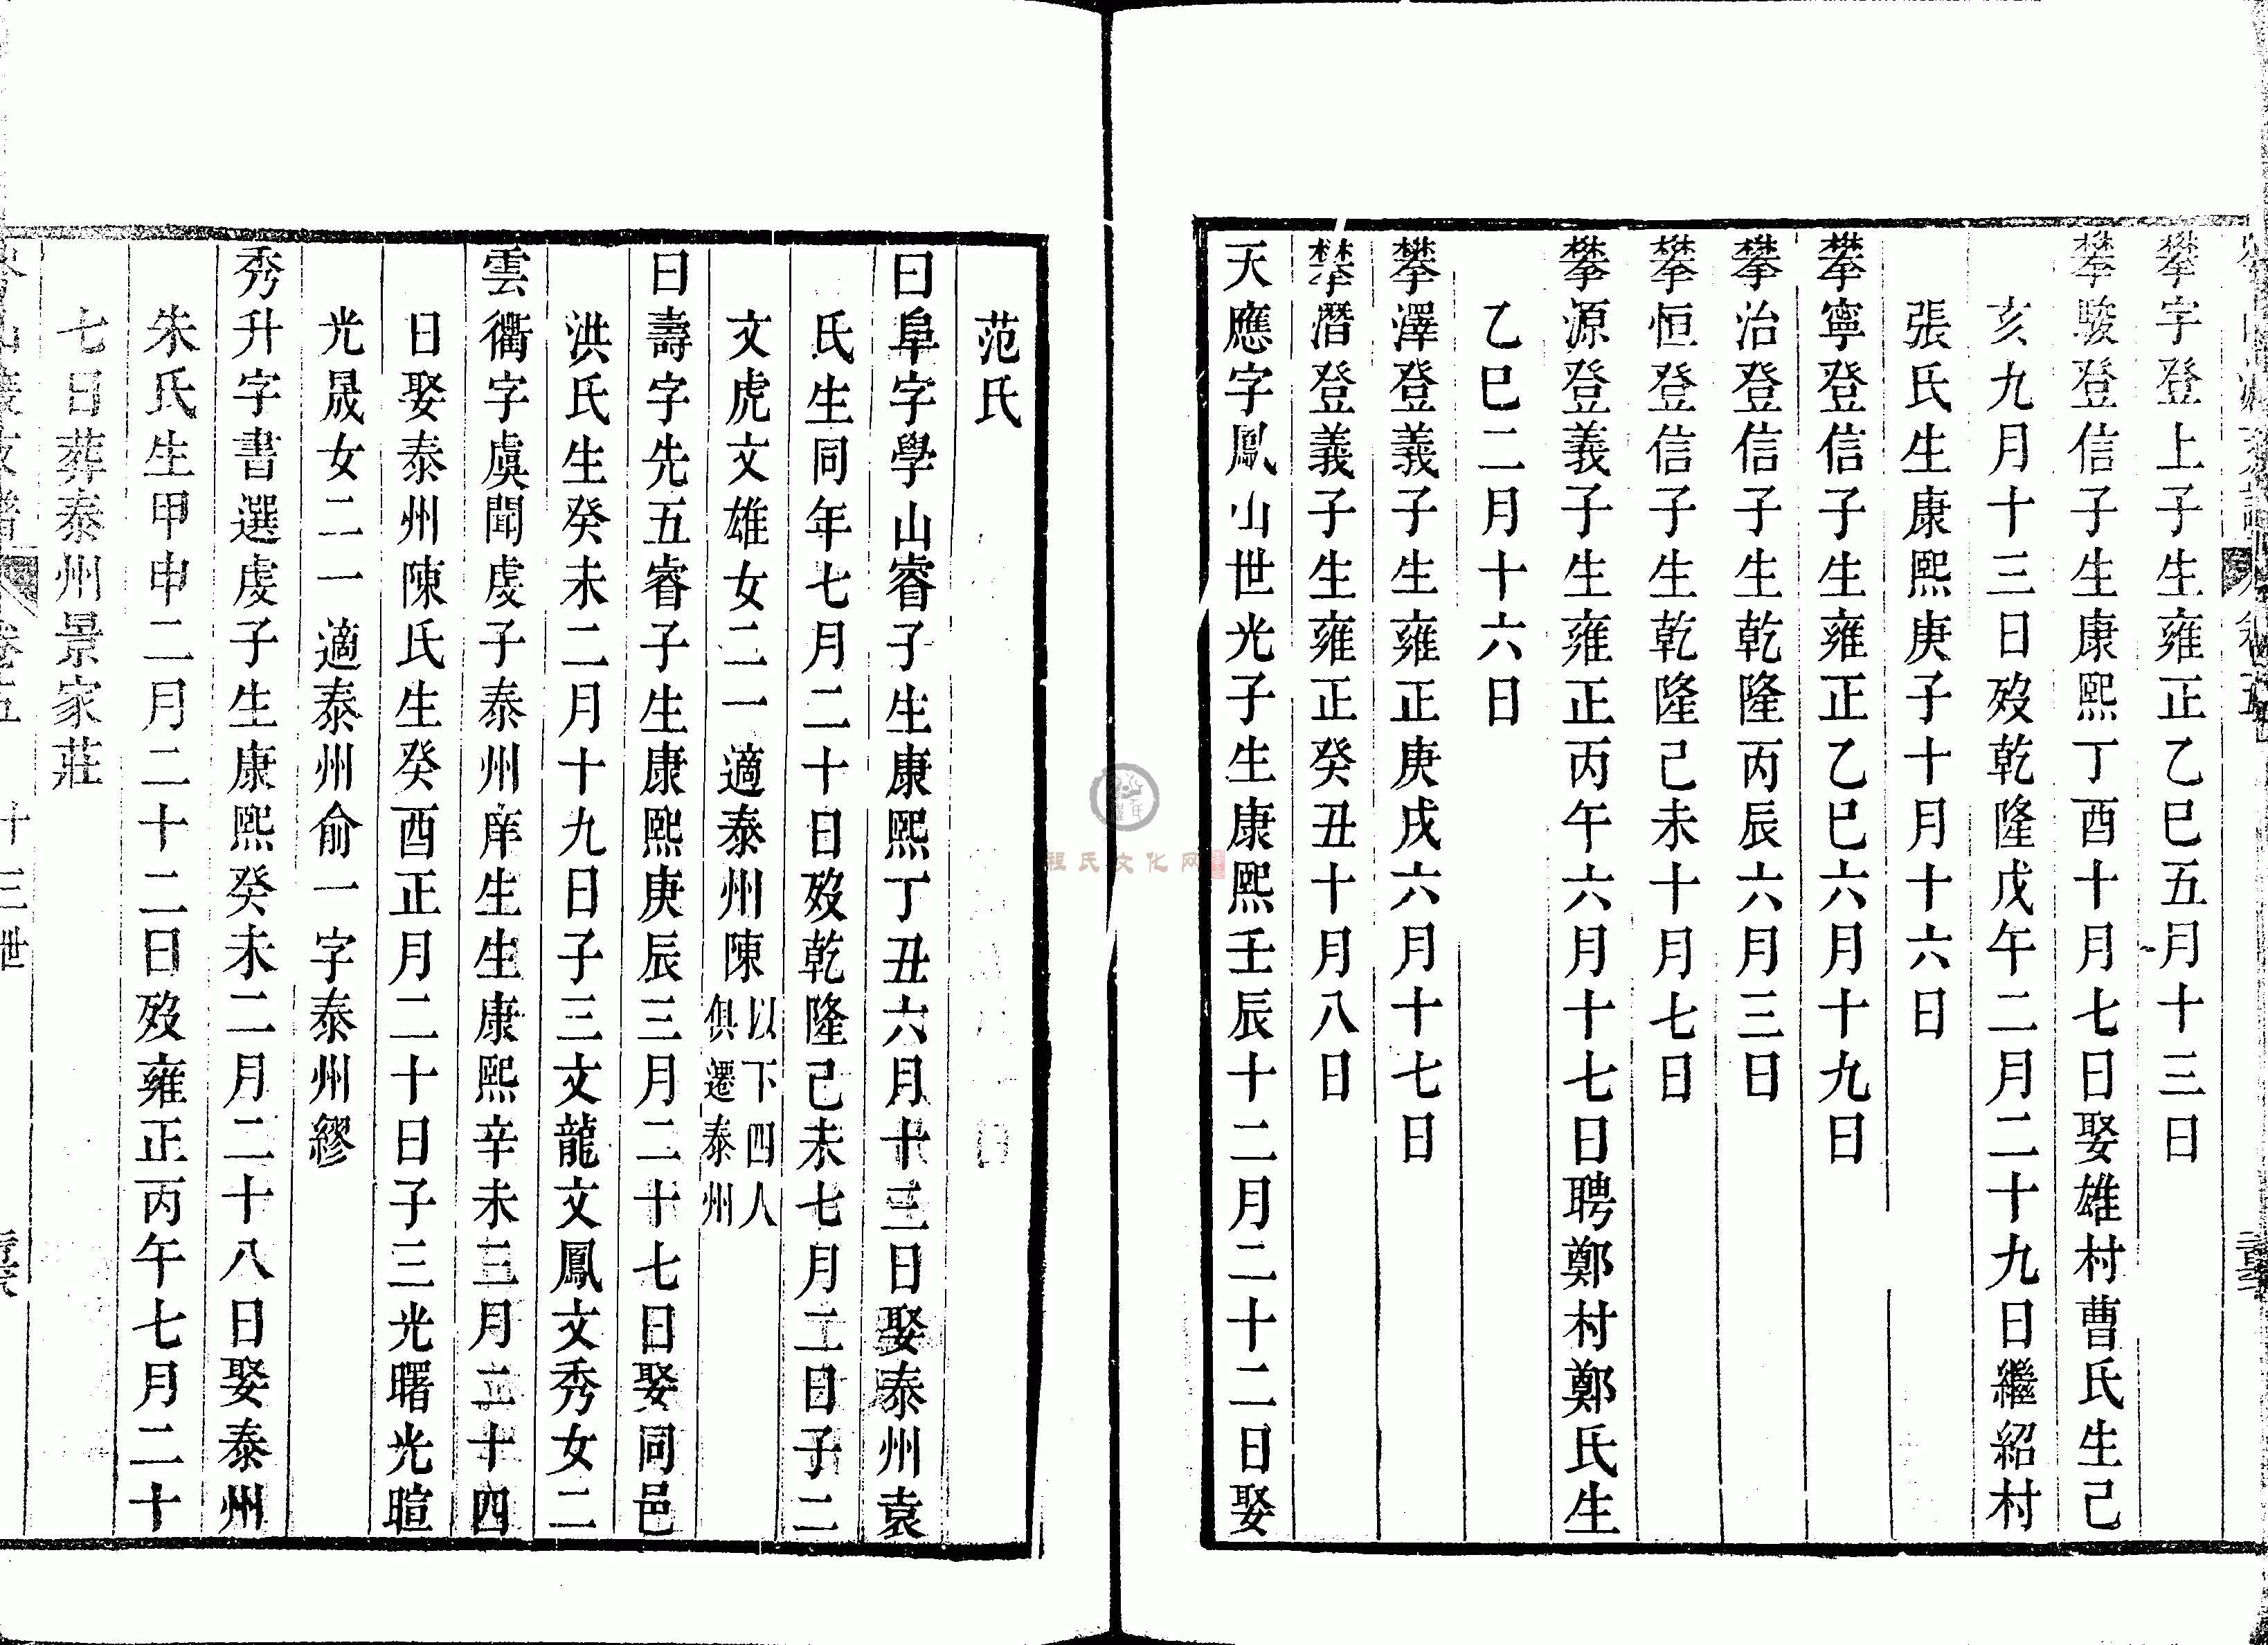 攀宇登上子生雍正乙巳五月十三日
攀駿登信子生康熙丁酉十月七日娶雄村曹氏生己
亥九月十三日歿乾隆戊午二月二十九日繼紹村
張氏生康熙庚子十月十六日
攀寧登信子生雍正乙巳六月十九日
攀治登信子生乾隆丙辰六月三日
攀恒登信子生乾隆己未十月七日
攀源登義子生雍正丙午六月十七日聘鄭村鄭氏生
乙巳二月十六日
攀澤登義子生雍正庚戌六月十七日
攀潛登義子生雍正癸丑十月八日
天應字鳳山世光子生康熙壬辰十二月二十二日娶
范氏
曰阜字學山睿子生康熙丁丑六月十三日娶泰州袁
氏生同年七月二十日歿乾隆己未七月二日子二
文虎文雄女二一適泰州陳以下四人俱遷泰州
曰壽字先五睿子生康熙庚辰三月二十七日娶同邑
洪氏生癸未二月十九日子三文龍文鳳文秀女二
雲衢字虞聞虔子泰州庠生生康熙辛未三月二十四
日娶泰州陳氏生癸酉正月二十日子三光曙光暄
光晟女二一適泰州俞一字泰州繆
秀升字書選虔子生康熙癸未二月二十八日娶泰州
朱氏生甲申二月二十二日歿雍正丙午七月二十
七日葬泰州景家莊
十三世
程氏文化网